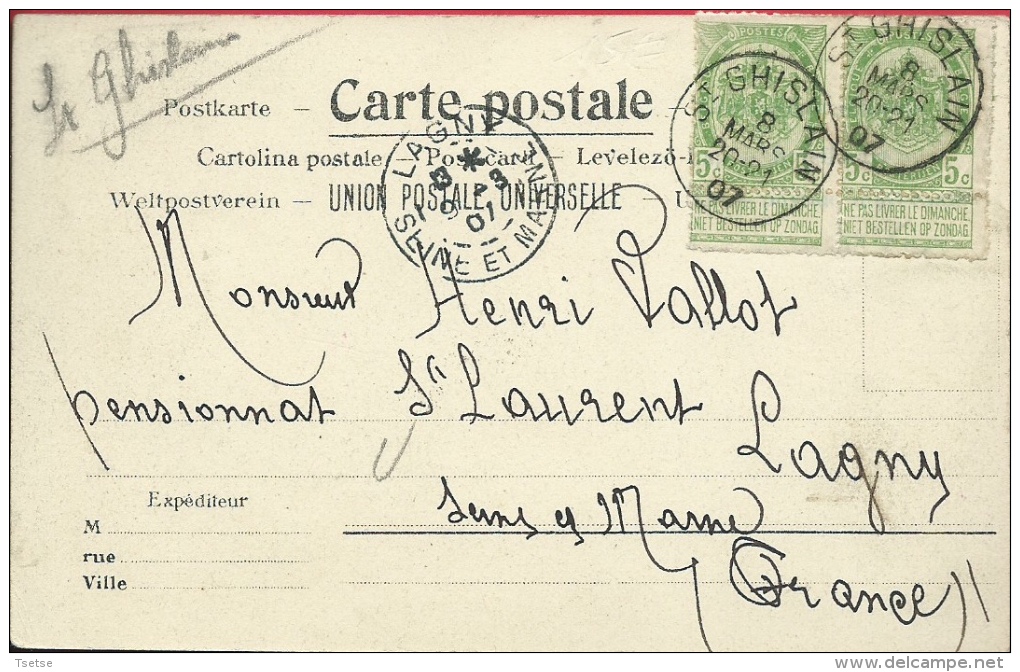 St Ghislain
Postkarte — Carte postale —
Cartolina postale — Post card — Levelező-
Weltpostverein — UNION POSTALE UNIVERSELLE — U
POSTES
5c
NE PAS LIVRER LE DIMANCHE
NIET BESTELLEN OP ZONDAG
5c 5c
NE PAS LIVRER LE DIMANCHE
NIET BESTELLEN OP ZONDAG
ST GHISLAIN
8
MARS
20-21
07
ST GHISLAIN
8
MARS
20-21
07
LAGNY
SEINE ET MARNE
Monsieur Henri Vallot
pensionnat St Laurent
Lagny
Seine et Marne
(France)
Expéditeur
M
rue
Ville
Tsetse
delcampe.net